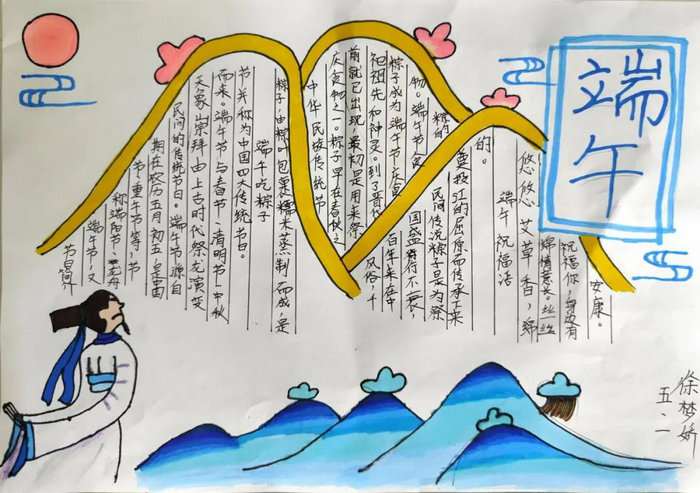 端午
节日简介
端午节,又
称端阳节、龙舟
节、重午节等,节
期在农历五月初五,是中国
民间的传统节日。端午节源自
天象崇拜,由上古时代祭龙演变
而来。端午节与春节、清明节、中秋
节并称为中国四大传统节日。
端午吃粽子
粽子,由粽叶包裹糯米蒸制而成,是
中华民族传统节
庆食物之一。粽子早在春秋之
前就已出现,最初是用来祭
祀祖先和神灵。到了晋代
粽子成为端午节庆食
物。端午节食
粽的风俗,千
百年来在中
国盛行不衰,
民间传说粽子是为祭
奠投江的屈原而传承下来
的。
端午祝福语
悠悠艾草香,绵
绵情意长。丝丝
祝福你,身边有
安康。
徐梦娇
五.一